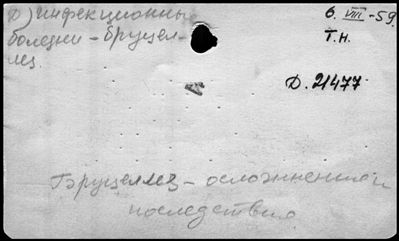 Д) инфекционные
болезни - бруцел-
лез.
6. VIII - 59.
Т.Н.
Д. 21477
Бруцеллез - осложнения и
последствия